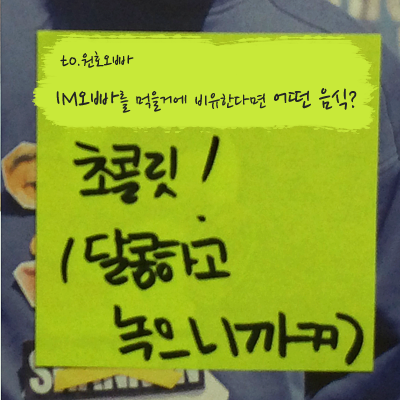 to.원호오빠
IM오빠를 먹을거에 비유한다면 어떤 음식?
초콜릿!
(달콩하고
녹으니까ㅠㅠ)